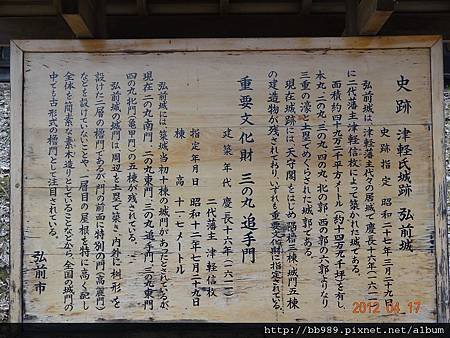 史跡 津軽氏城跡 弘前城
史跡指定 昭和二十七年三月二十九日
弘前城は、津軽藩主代々の居城で慶長十六年(一六一一)
に二代藩主津軽信枚によって築かれた城である。
面積約四十九万二千平方メートル(約十四万九千坪)を有し、
本丸、二の丸、三の丸、四の丸、北の郭、西の郭の六郭よりなり
三重の濠と土塁でめぐらされた城郭である。
現在城跡には、天守閣をはじめ隅櫓三棟、城門五棟
の建造物が残されており、いずれも重要文化財に指定されている。
重要文化財 三の丸 追手門
建築年代 慶長十六年(一六一一)
二代藩主 津軽信枚
指定年月日 昭和十二年七月二十九日
棟高 十一・七メートル
弘前城には、築城当初十棟の城門があったとされているが、
現在 二の丸南門、二の丸東門、三の丸追手門、三の丸東門、
四の丸北門(亀甲門)の五棟が残されている。
弘前城の城門は、周辺を土塁で築き、内外に枡形を
設けた二層の櫓門であるが、門の前面に特別の門(高麗門)
などを設けていないことや、一層目の屋根を特に高く配し
全体を簡素な素木造りとしていることなどから、全国の城門の
中でも古形式の櫓門として注目されている。
弘前市
2012 04 17
http://bb989.pixnet.net/album